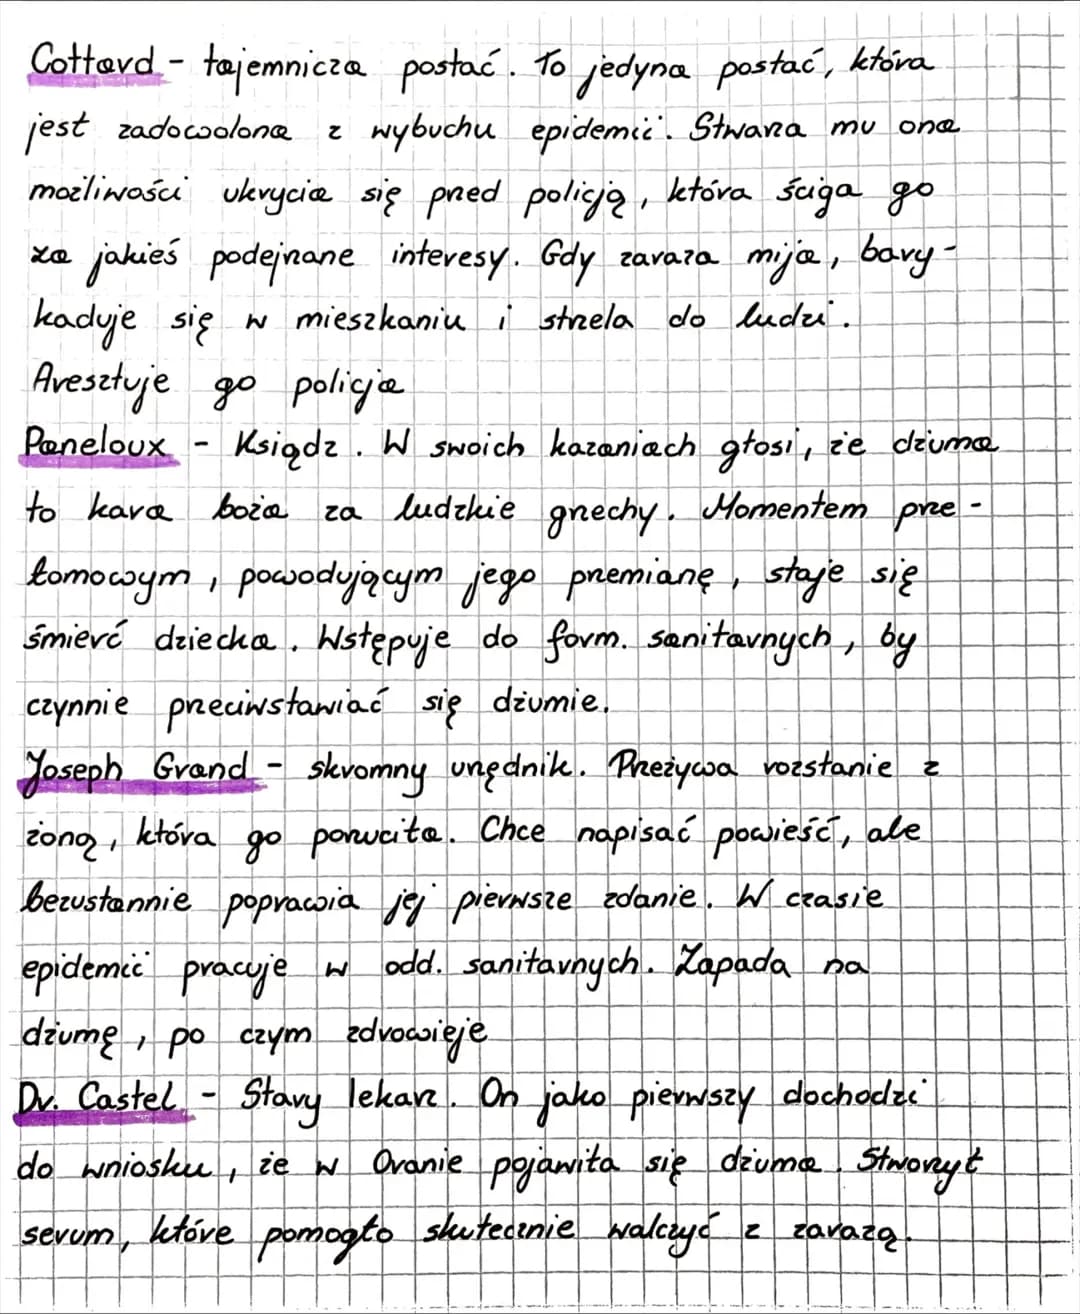 Cottard - tajemnicza postać. To jedyna postać, która
jest zadowolona z wybuchu epidemii. Stwarza mu ona
możliwości ukrycia się przed policją, która ściga go
za jakieś podejrzane interesy. Gdy zaraza mija, bary-
kaduje się w mieszkaniu i strzela do ludzi.
Aresztuje go policja
Paneloux - Ksiądz. W swoich kazaniach głosi, że dżuma
to kara boża za ludzkie grzechy. Momentem prze-
łomowym, powodującym jego przemianę, staje się
śmierć dziecka. Wstępuje do form. sanitarnych, by
czynnie przeciwstawiać się dżumie.
Joseph Grand - skromny urzędnik. Przeżywa rozstanie z
żoną, która go porzuciła. Chce napisać powieść, ale
bezustannie poprawia jej pierwsze zdanie. W czasie
epidemii pracuje w odd. sanitarnych. Zapada na
dżumę, po czym zdrowieje
Dr. Castel - Stary lekarz. On jako pierwszy dochodzi
do wniosku, że w Oranie pojawiła się dżuma. Stworzył
serum, które pomogło skutecznie walczyć z zarazą.